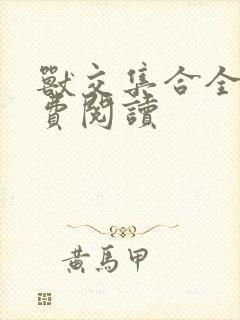 獸交集合全
費閱讀
黃馬甲